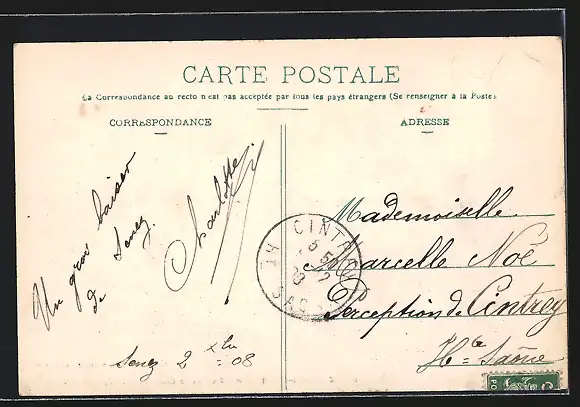 CARTE POSTALE
La Correspondance au recto n'est pas acceptée par tous les pays étrangers (Se renseigner à la Poste)
CORRESPONDANCE
ADRESSE
Un gros baiser
de Senez.
Charlotte
Senez 2 Xbre 08
Mademoiselle
Marcelle Noé
Perception de Cintrey
Hte Saône
CINTREY